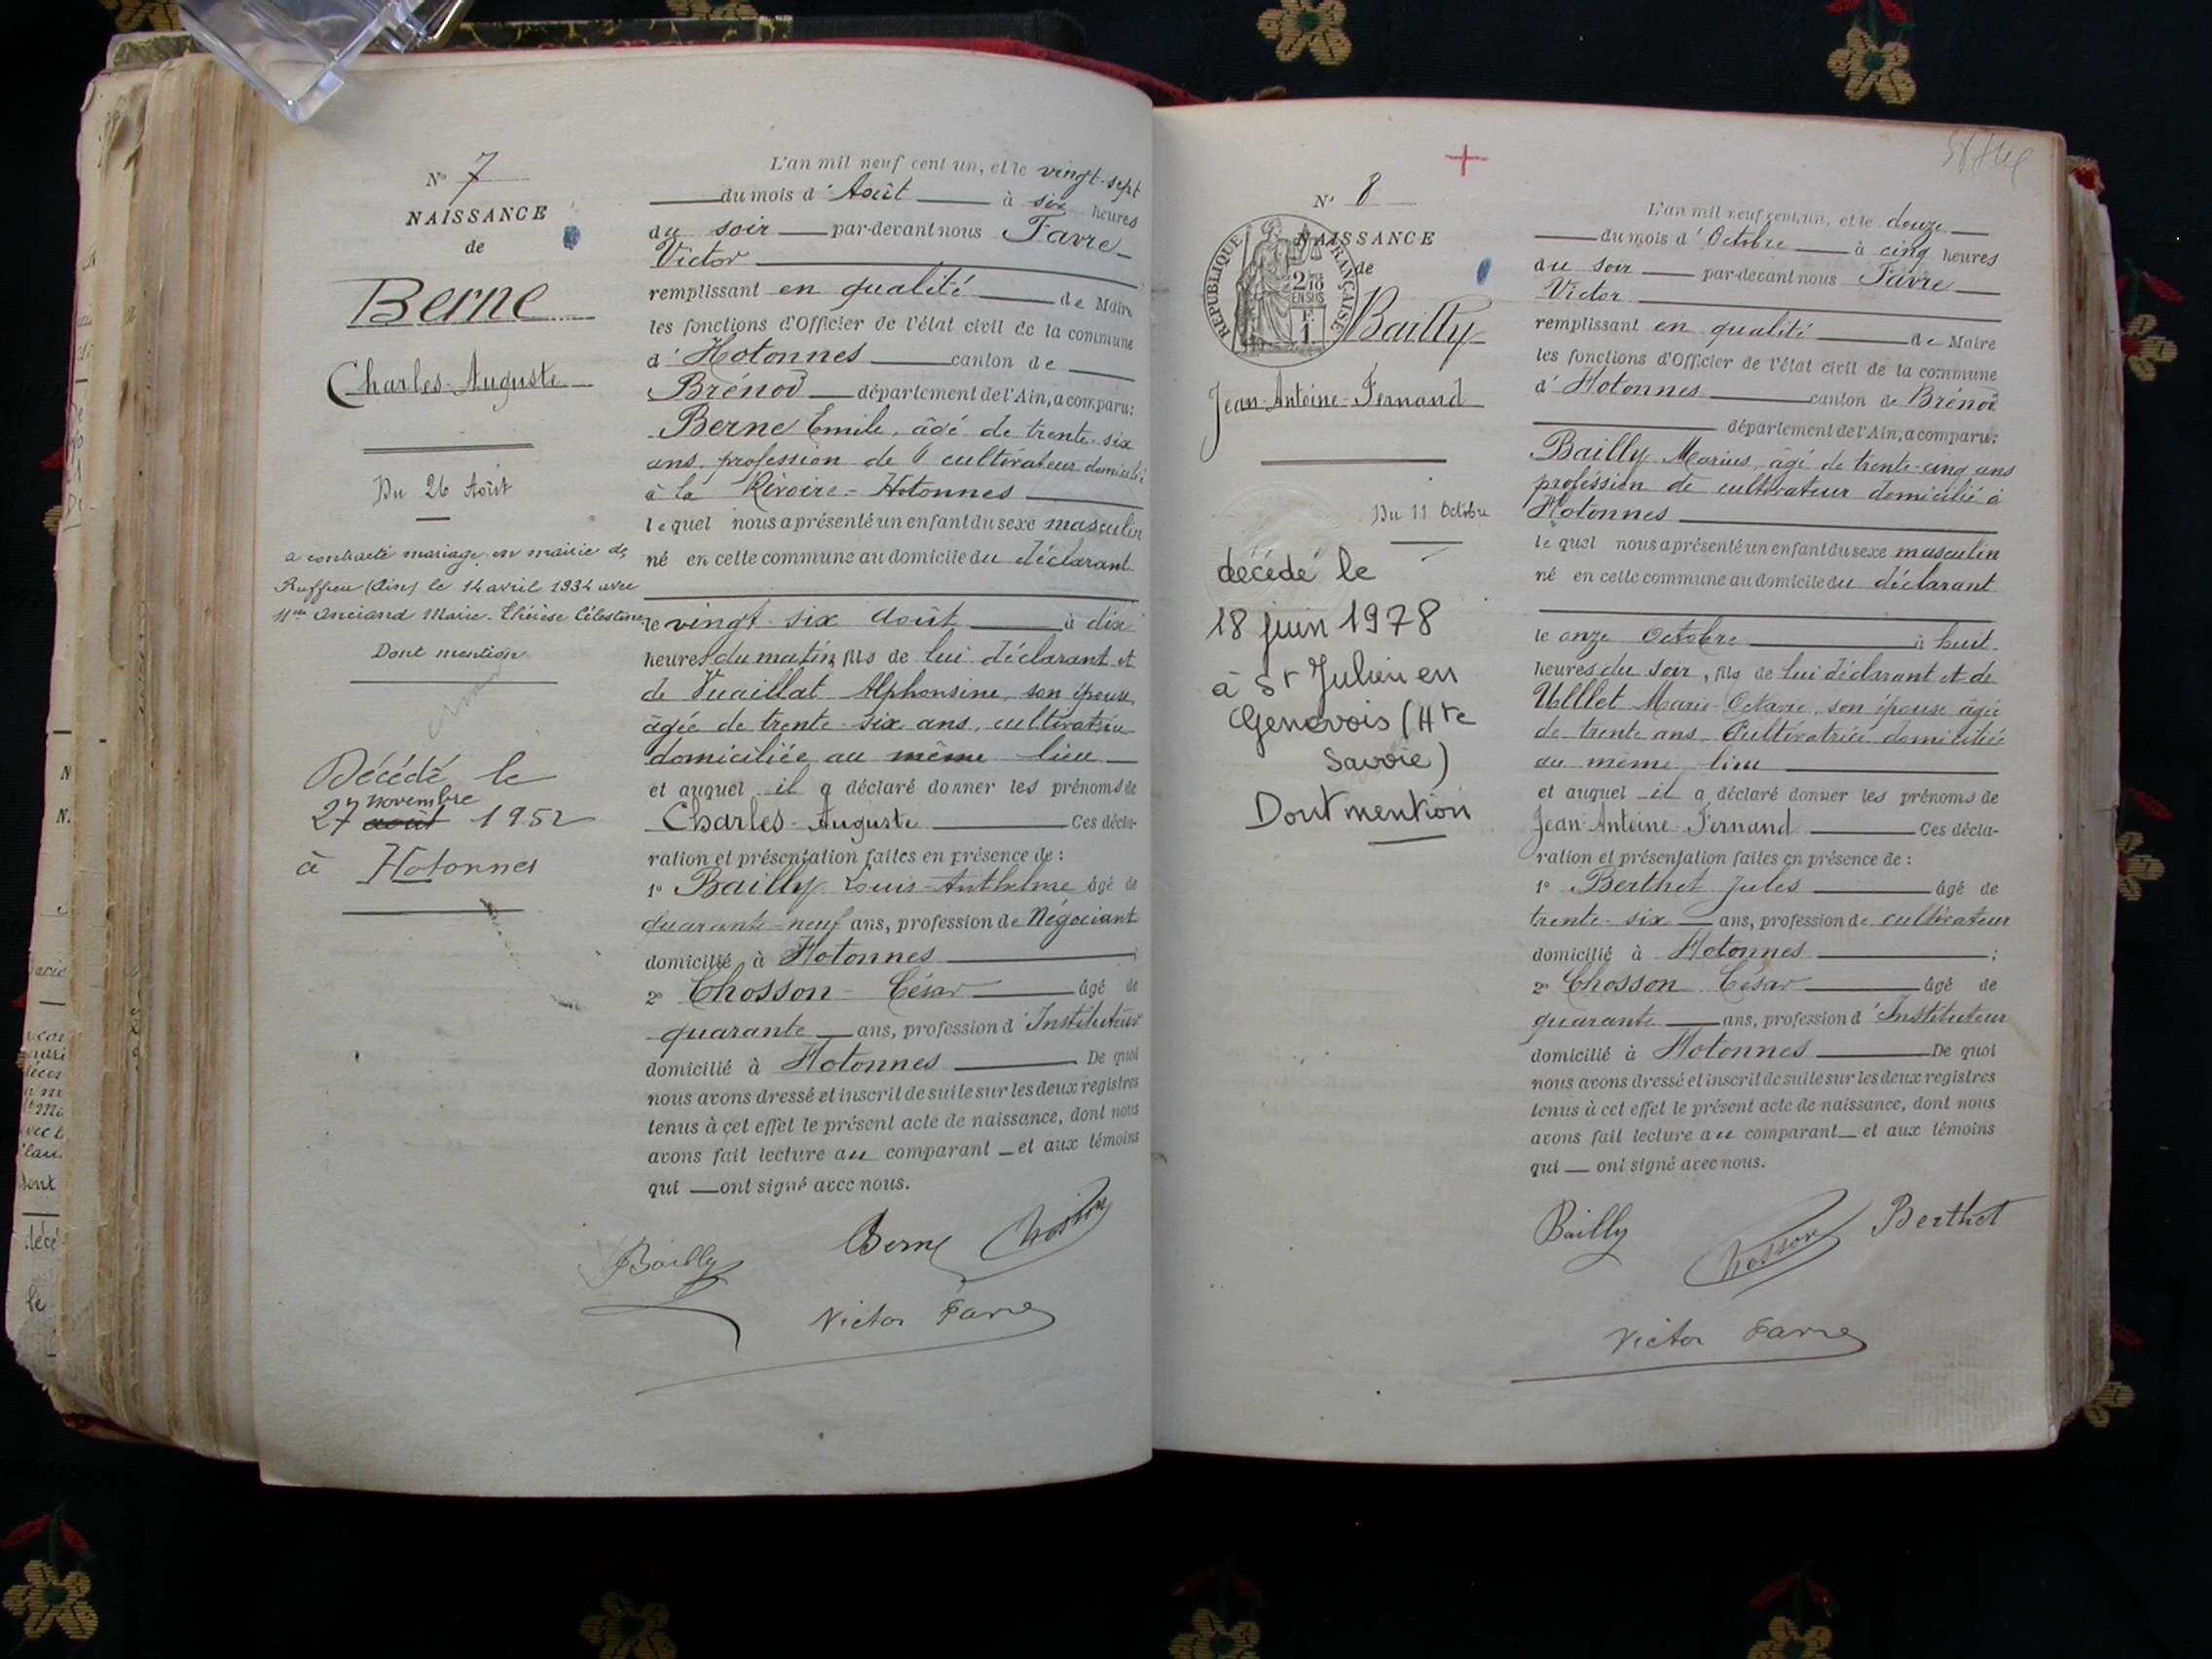 N° 7
NAISSANCE
de
Berne
Charles-Auguste
Du 26 Août
a contracté mariage en mairie de
Ruffieu (Ain) le 14 avril 1934 avec
Marie-Thérèse Célestine
Dont mention
Décédé le
novembre
27 août 1952
à Hotonnes
L'an mil neuf cent un, et le vingt-sept
du mois d'Août à six heures
du soir par-devant nous Favre
Victor
remplissant en qualité de Maire
les fonctions d'Officier de l'état civil de la commune
d'Hotonnes canton de
Brénod département de l'Ain, a comparu:
Berne Emile, âgé de trente-six
ans, profession de cultivateur domicilié
à la Rivoire-Hotonnes
lequel nous a présenté un enfant du sexe masculin
né en cette commune au domicile du déclarant
le vingt-six août à dix
heures du matin, fils de lui déclarant et
de Vuaillat Alphonsine, son épouse,
âgée de trente-six ans, cultivatrice
domiciliée au même lieu
et auquel il a déclaré donner les prénoms de
Charles-Auguste Ces décla-
ration et présentation faites en présence de:
1° Bailly Louis-Anthelme âgé de
quarante-neuf ans, profession de Négociant
domicilié à Hotonnes ;
2° Chosson César âgé de
quarante ans, profession d'Instituteur
domicilié à Hotonnes De quoi
nous avons dressé et inscrit de suite sur les deux registres
tenus à cet effet le présent acte de naissance, dont nous
avons fait lecture au comparant et aux témoins
qui ont signé avec nous.
Bailly Berne Chosson
Victor Favre
N° 8
NAISSANCE
de
REPUBLIQUE FRANÇAISE
2/10
EN SUS
F.
1.
Bailly
Jean-Antoine-Fernand
Du 11 Octobre
décédé le
18 juin 1978
à St Julien en
Genevois (Hte
Savoie)
Dont mention
L'an mil neuf cent un, et le douze
du mois d'Octobre à cinq heures
du soir par-devant nous Favre
Victor
remplissant en qualité de Maire
les fonctions d'Officier de l'état civil de la commune
d'Hotonnes canton de Brénod
département de l'Ain, a comparu:
Bailly Marius, âgé de trente-cinq ans
profession de cultivateur domicilié à
Hotonnes
lequel nous a présenté un enfant du sexe masculin
né en cette commune au domicile du déclarant
le onze Octobre à huit
heures du soir, fils de lui déclarant et de
Marie-Octavie, son épouse âgée
de trente ans, Cultivatrice domiciliée
au même lieu
et auquel il a déclaré donner les prénoms de
Jean-Antoine-Fernand Ces décla-
ration et présentation faites en présence de:
1° Berthet Jules âgé de
trente-six ans, profession de cultivateur
domicilié à Hotonnes ;
2° Chosson César âgé de
quarante ans, profession d'Instituteur
domicilié à Hotonnes De quoi
nous avons dressé et inscrit de suite sur les deux registres
tenus à cet effet le présent acte de naissance, dont nous
avons fait lecture au comparant et aux témoins
qui ont signé avec nous.
Bailly Chosson Berthet
Victor Favre